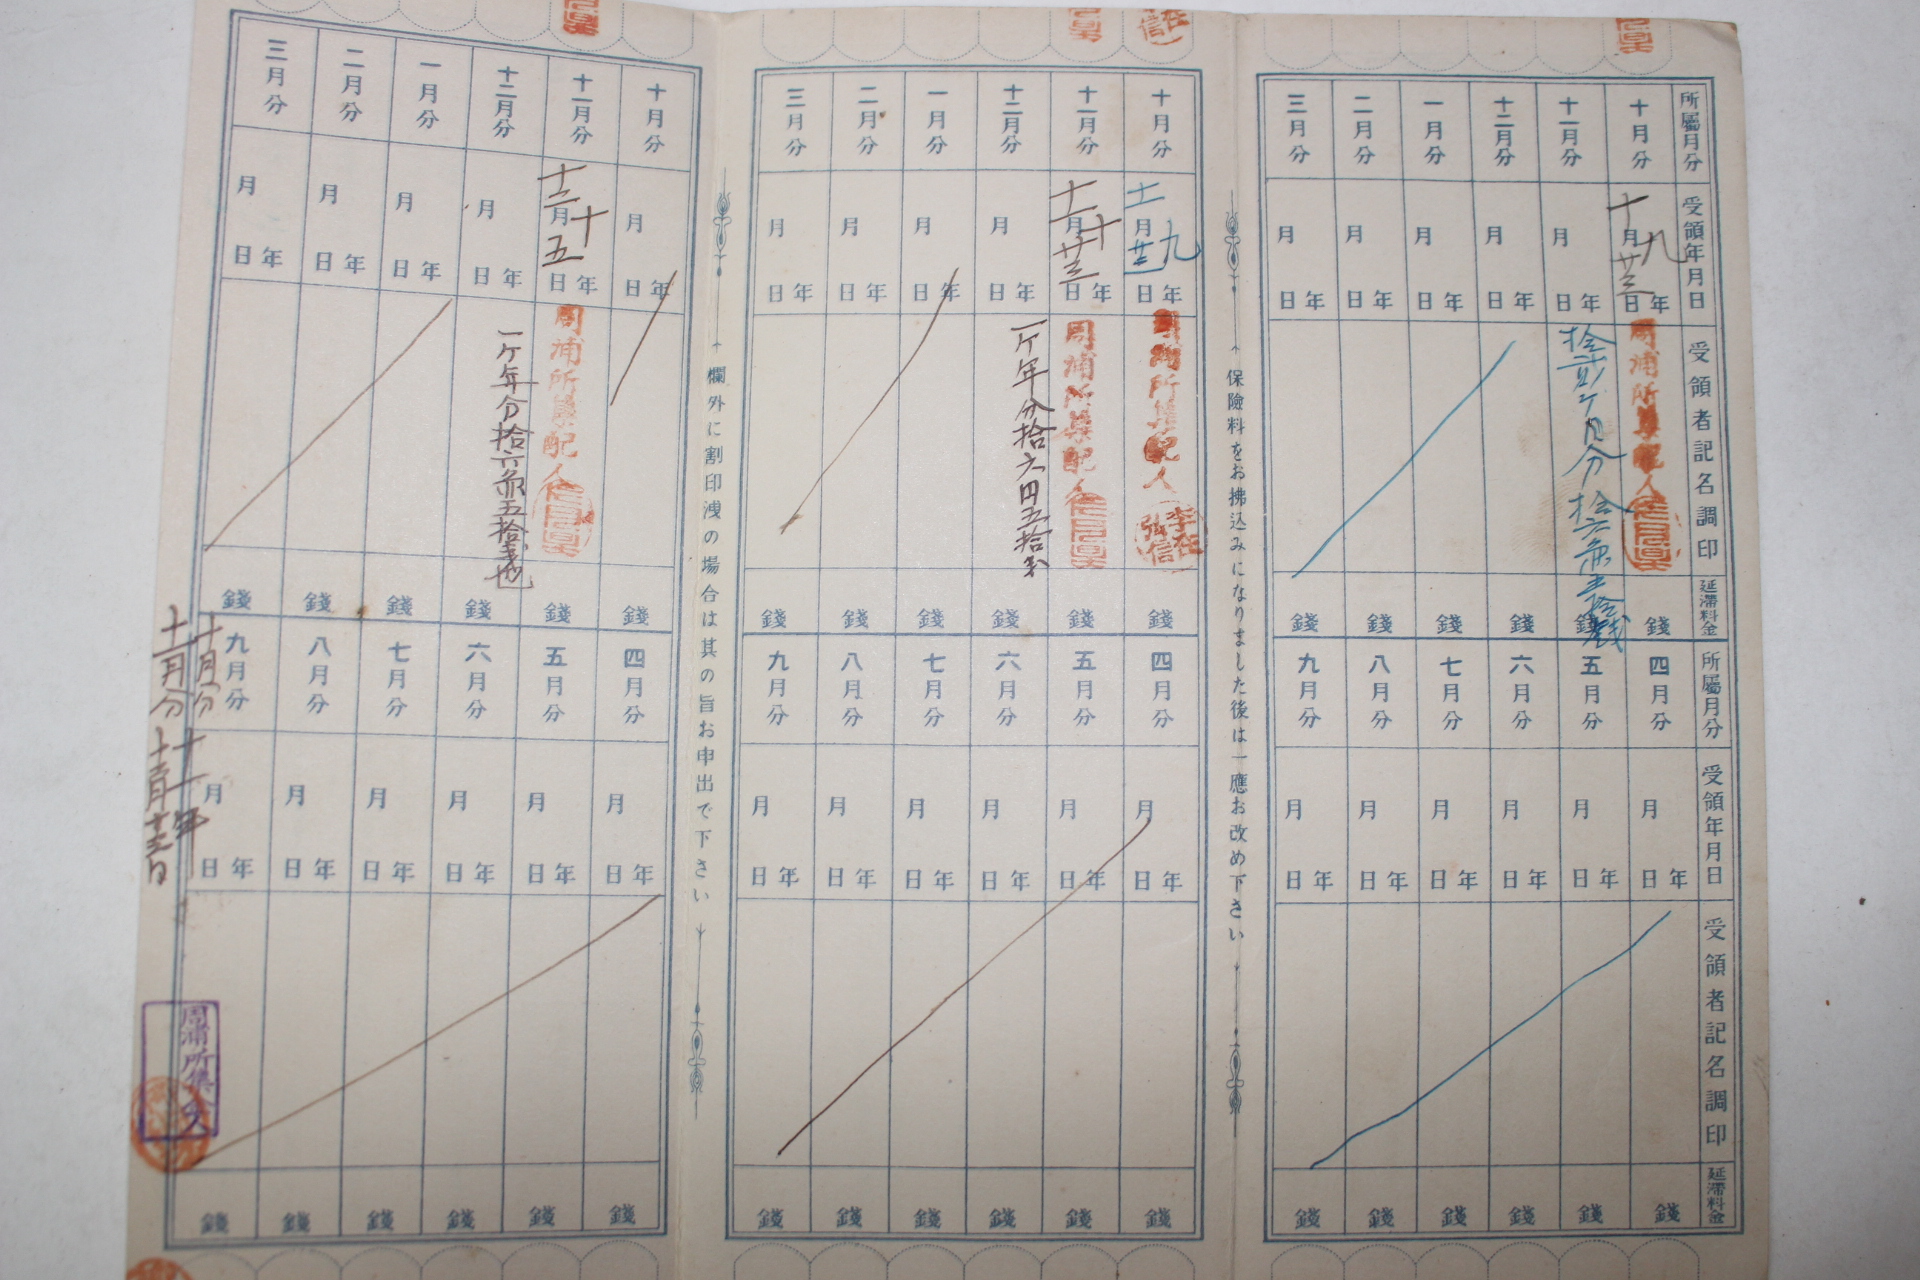 所屬月分
十月分
十一月分
十二月分
一月分
二月分
三月分
受領年月日
九年十月廿三日
年月日
年月日
年月日
年月日
年月日
受領者記名調印
周浦所集配人
拾貳ケ月分拾六円五拾戔
延滯料金
錢
錢
錢
錢
錢
錢
所屬月分
四月分
五月分
六月分
七月分
八月分
九月分
受領年月日
年月日
年月日
年月日
年月日
年月日
年月日
受領者記名調印
延滯料金
錢
錢
錢
錢
錢
錢
保險料をお拂込みになりました後は一應お改め下さい
十月分
十一月分
十二月分
一月分
二月分
三月分
年月日
年月日
年月日
年月日
周浦所集配人
李在信
周浦所集配人
一ケ年分拾六円五拾戔
錢
錢
錢
錢
錢
錢
四月分
五月分
六月分
七月分
八月分
九月分
年月日
年月日
年月日
年月日
年月日
年月日
錢
錢
錢
錢
錢
錢
欄外に割印洩の場合は其の旨お申出で下さい
十月分
十一月分
十二月分
一月分
二月分
三月分
年月日
年月日
年月日
年月日
年月日
周浦所集配人
一ケ年分拾六円五拾戔也
錢
錢
錢
錢
錢
錢
四月分
五月分
六月分
七月分
八月分
九月分
年月日
年月日
年月日
年月日
年月日
年月日
錢
錢
錢
錢
錢
錢
十月分
十一月分
十一年
周浦所集